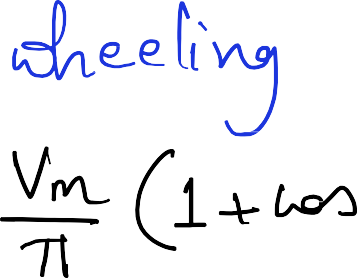 wheeling
Vm/π (1 + cos